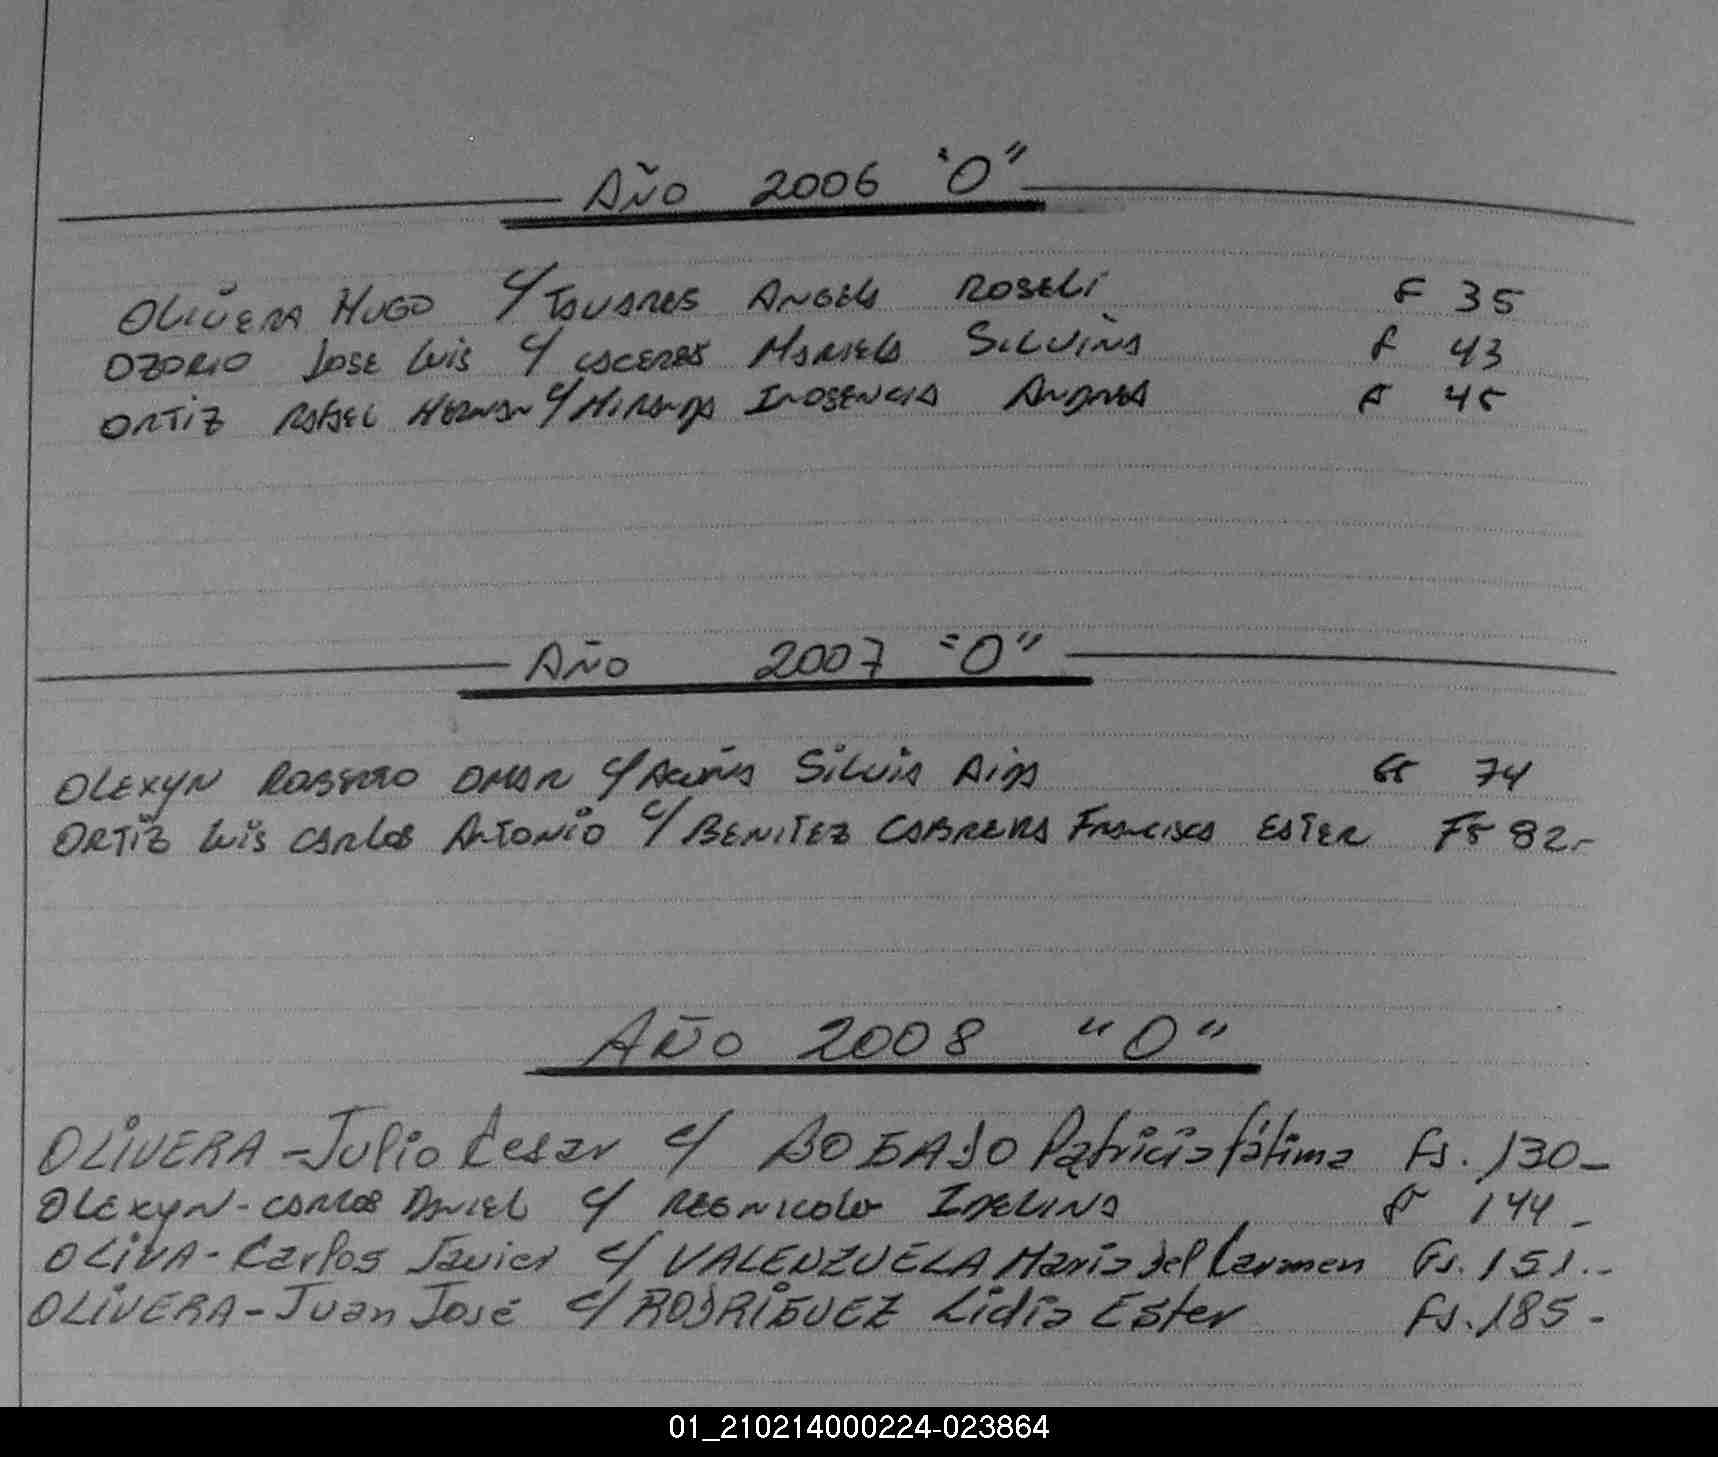 Año 2006 "O"
OLIVERA HUGO c/ TAVARES ANGELA ROSELI F 35
OZORIO JOSE Luis c/ CACERES MARIELA SILVIÑA F 43
ORTIZ RAFAEL HERNAN c/ MIRANDA INOSENCIA ANDREA F 45
Año 2007 "O"
OLEXYN ROBERTO OMAR c/ ACUÑA SILVIA AIDA Fs 74
ORTIZ Luis CARLOS ANTONIO c/ BENITEZ CABRERA FRANCISCA ESTER Fs 82.-
AÑO 2008 "O"
OLIVERA - Julio Cesar c/ BOGADO Patricia fátima Fs. 130-
OLEXYN - CARLOS DANIEL c/ IDELINA F 144-
OLIVA - Carlos Javier c/ VALENZUELA Maria del Carmen Fs. 151.-
OLIVERA - Juan José c/ RODRIGUEZ Lidia Ester Fs. 185-
01_210214000224-023864